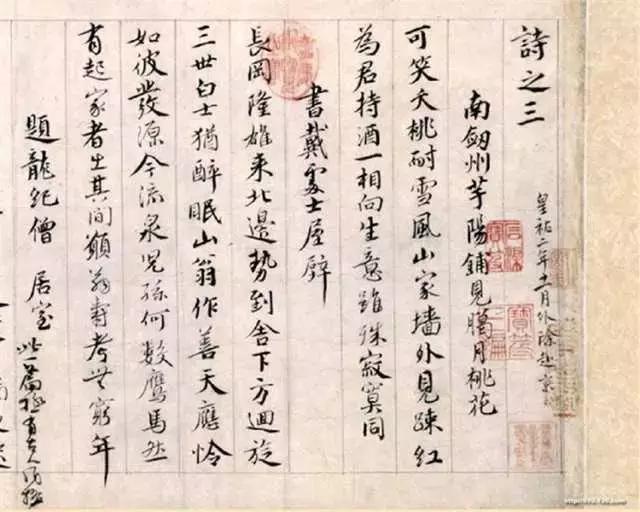 詩之三
皇祐二年十一月外除赴京
南劔州芋陽鋪見臘月桃花
可笑夭桃耐雪風山家墻外見疎紅
為君持酒一相向生意雖殊寂寞同
書戴處士屋壁
長岡隆雄來北邊勢到舍下方迴旋
三世白士猶醉眠山翁作善天應憐
如彼發源今流泉兒孫何數鷹馬然
有起家者出其間願翁壽考無窮年
題龍紀僧居室
此一篇極有古人風格